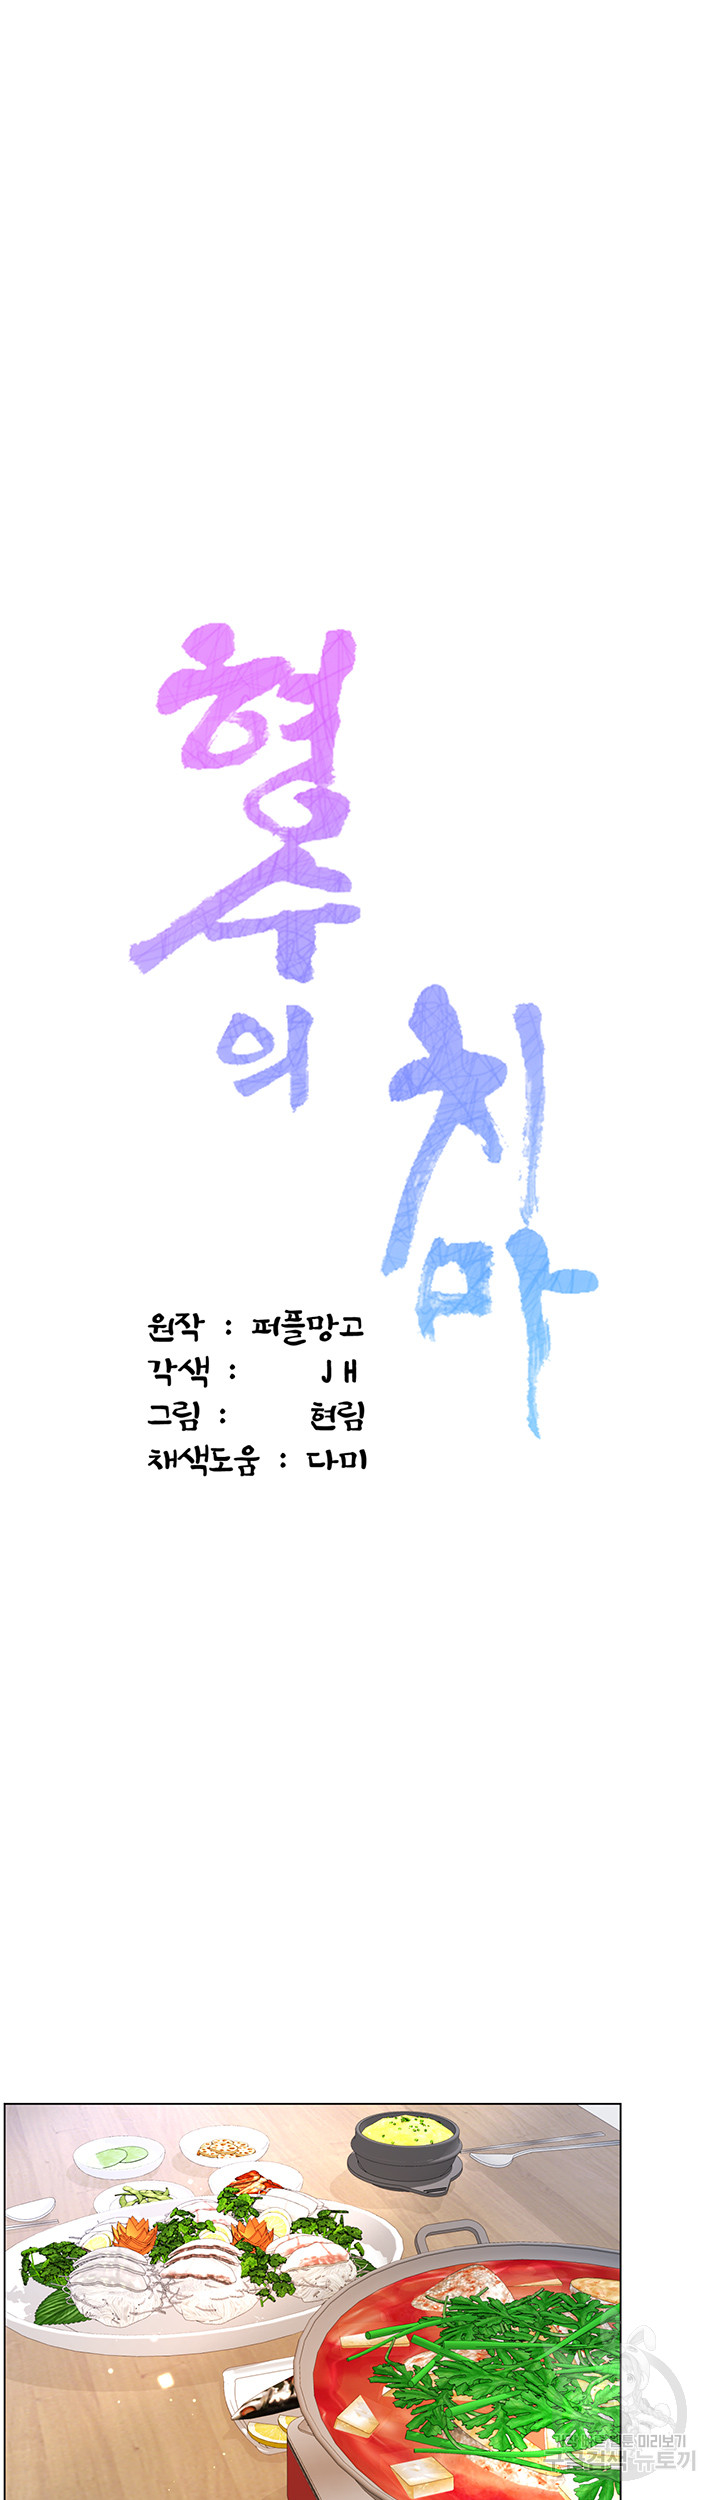 형수
의
치마
원작 : 퍼플망고
각색 : JH
그림 : 혀림
채색도움 : 다미
구글검색 뉴토끼